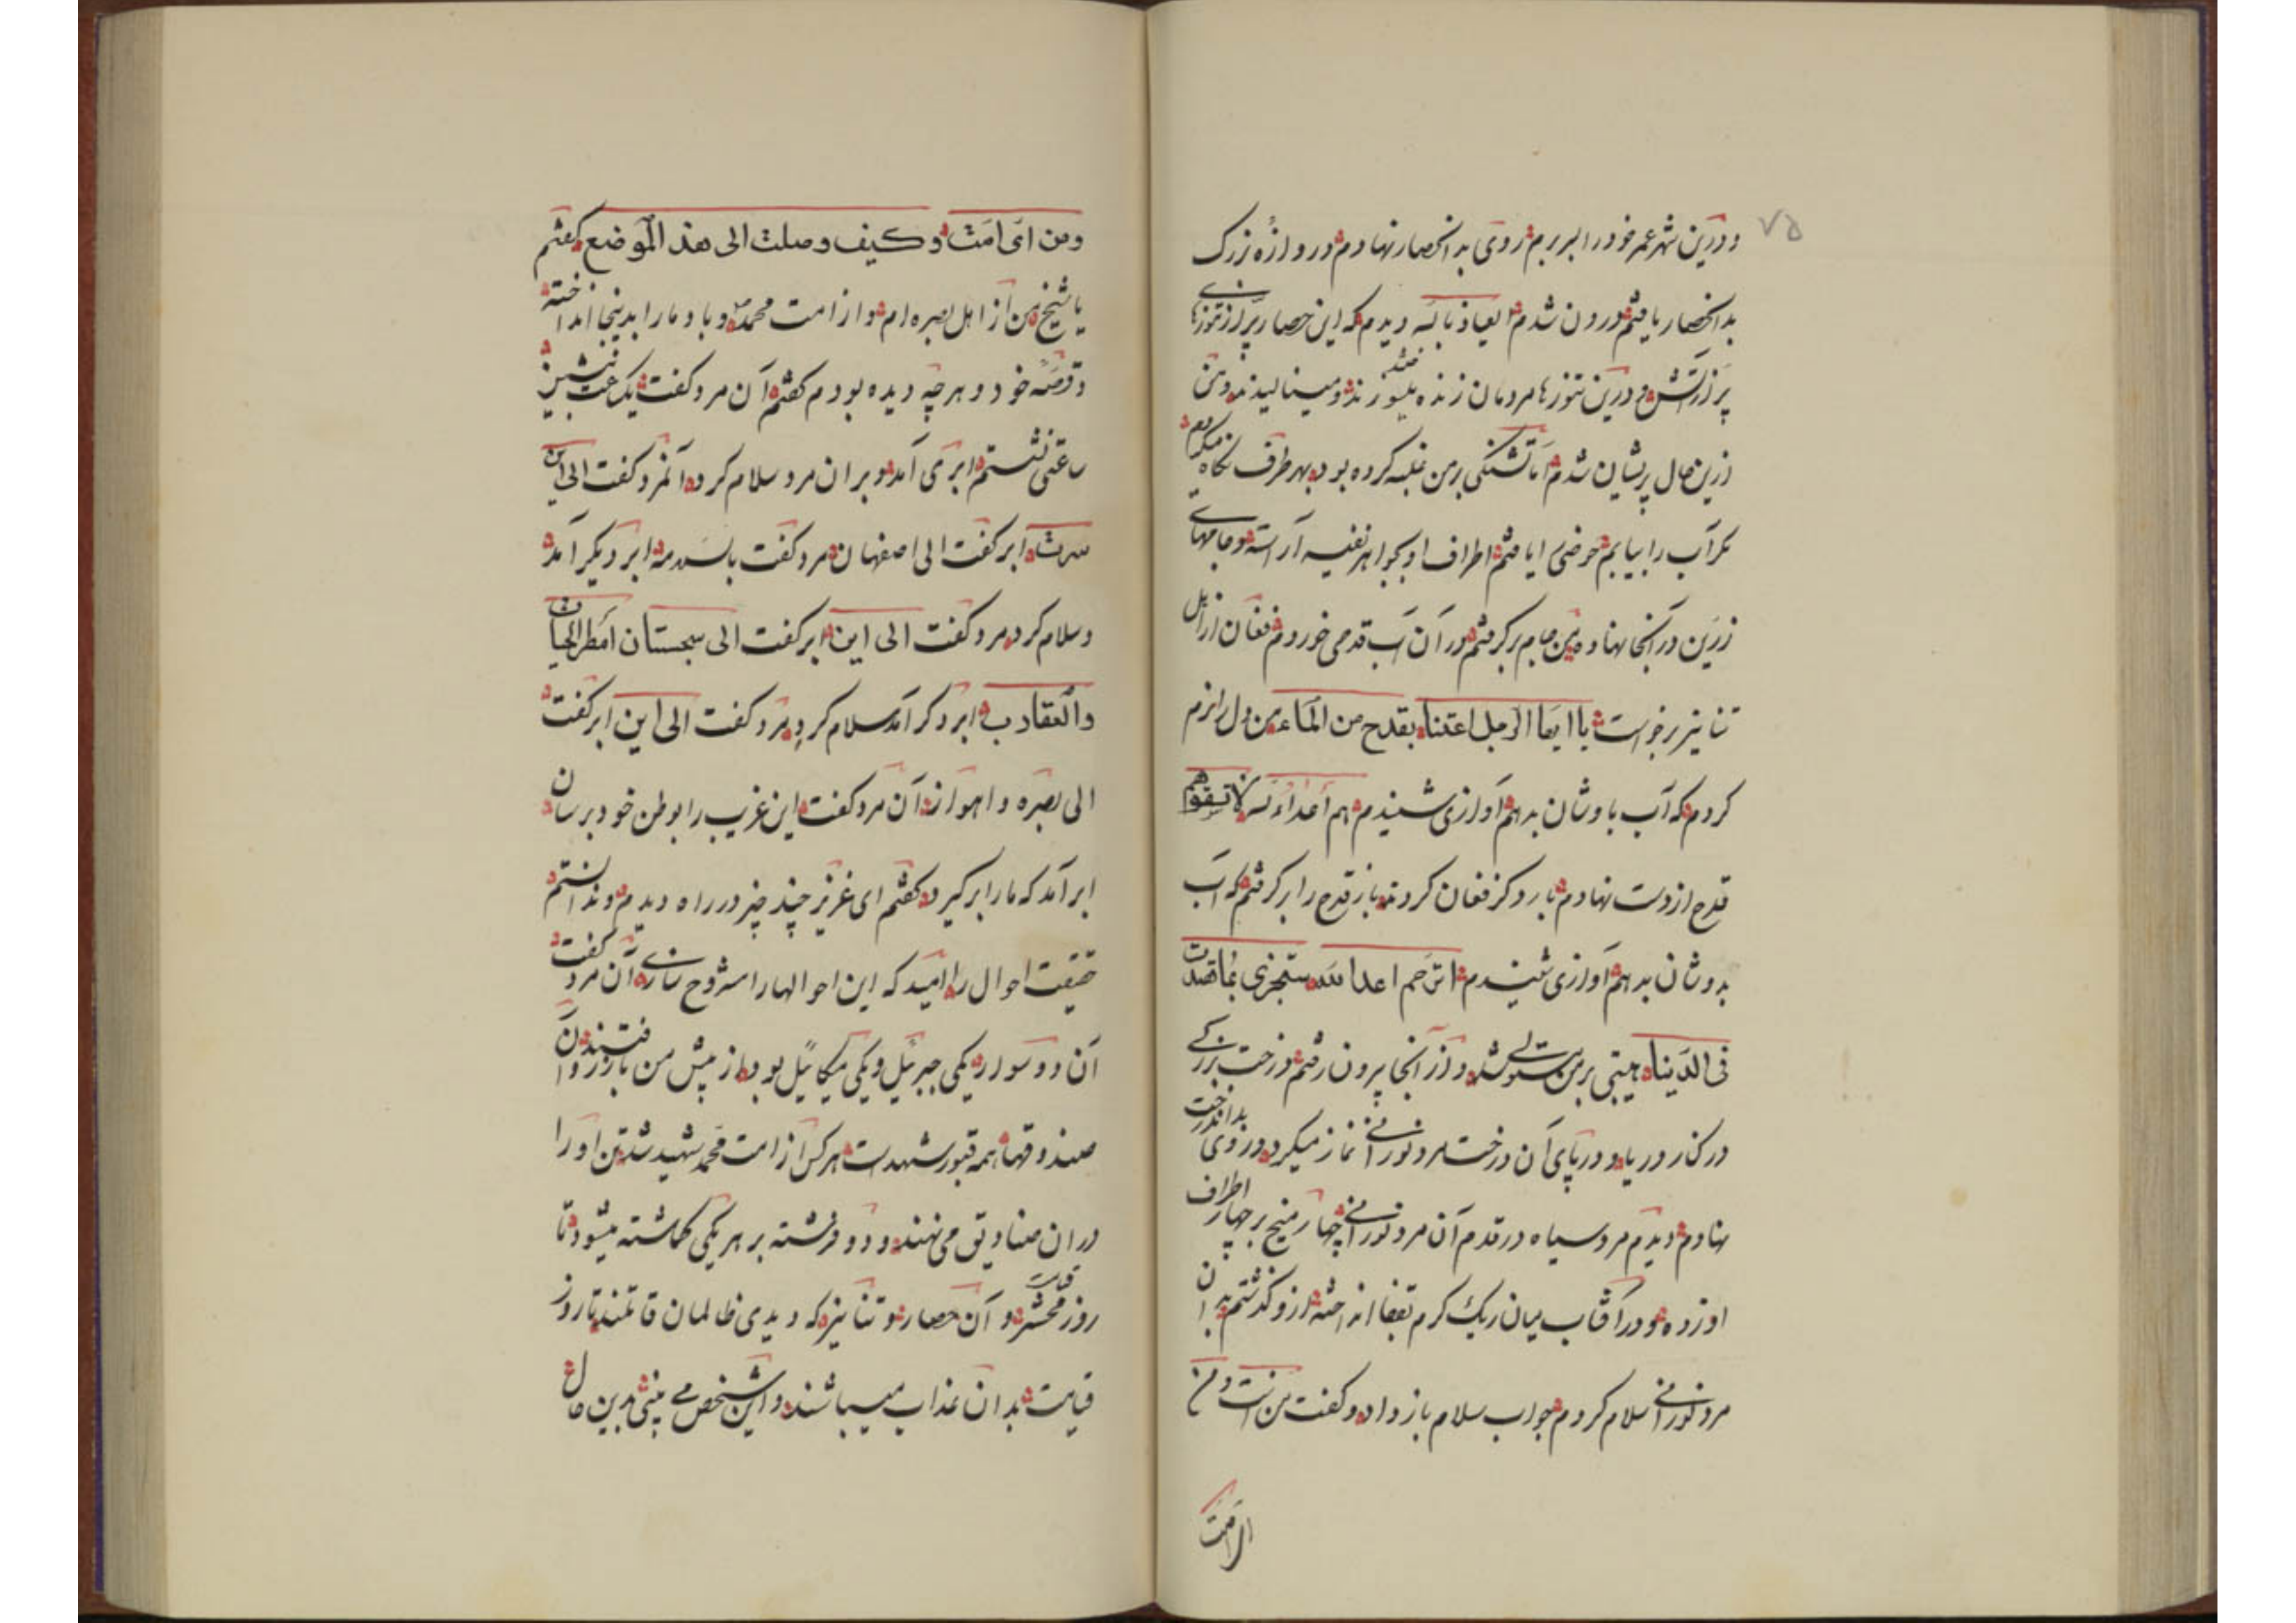 ۷۵
و درین شهر عمر خود را بسر برم روی بدانحصار نهادم دروازهٔ بزرگ
بدانحصار یافتم درون شدم العیاذ بالله دیدم که این حصار پر از تنورهای
پر از آتش و درین تنورها مردمان زنده میسوزند و مینالیدند و من
ازین حال پریشان شدم اما تشنگی بر من غلبه کرده بود بهر طرف نگاه میکردم
مگر آب را بیابم حوضی را یافتم اطراف او بجواهر نفیسه آراسته و جامهای
زرین در آنجا نهاده من جام برگرفتم و از آن آب قدحی خوردم فغان از اهل
تنانیر برخواست یا ایها الرجل اغثنا بقدح من الماء من دل را نرم
کردم که آب باوشان بدهم آوازی شنیدم هم أعداء لله لا تسقوهم
قدح از دست نهادم بار دگر فغان کردند باز قدح را برگرفتم که آب
بدوشان بدهم آوازی شنیدم اترحم اعدا الله ستجزی بما قصدت
فی الدنیا هیبتی بر من مستولی شد و از آنجا بیرون رفتم درخت بزرگی
در کنار دریا و در پای آن درخت مرد نورانی نماز میکرد و روی بدان درخت
نهادم دیدم مرد سیاه در قدم آن مرد نورانی چهار میخ بر چهار اطراف
او زده و در آفتاب میان ریک گرم تفتا انداخته از و گذشتم بدان
مرد نورانی سلام کردم جواب سلام باز داد و گفت من انت و من
ای امت
ومن ای امت وکیف وصلت الی هذا الموضع گفتم
یا شیخ من از اهل بصره ام و از امت محمد و باد مارا بدینجا انداخته
و قصه خود و هر چه دیده بودم گفتم آن مرد گفت یکساعت بنشین
ساعتی نشستم ابری آمد و بران مرد سلام کرد آنمرد گفت الی این
سرت ابر گفت الی اصفهان مرد گفت بالسلامه ابر دیگر آمد
و سلام کرد مرد گفت الی این ابر گفت الی سجستان امطر الحیات
والعقارب ابر دگر آمد سلام کرد مرد گفت الی این ابر گفت
الی بصره و اهواز آن مرد گفت این غریب را بوطن خود برسان
ابر آمد که مارا برگیرد گفتم ای عزیز چند چیز در راه دیدم و ندانستم
حقیقت احوال را امید که این احوالها را مشروح سازی آن مرد گفت
آن دو سوار یکی جبرئیل و یکی میکائیل بود از پیش من باز رفتند و آن
صندوقها همه قبور شهداست هر کس از امت محمد شهید شد تن او را
در ان صنادیق می نهند و دو فرشته بر هر یکی گماشته میشود تا
روز محشر قیامت و آن حصار و تنانیر که دیدی ظالمان قاتلند تا روز
قیامت بدان عذاب میباشند و این شخص می بینی بدین حال